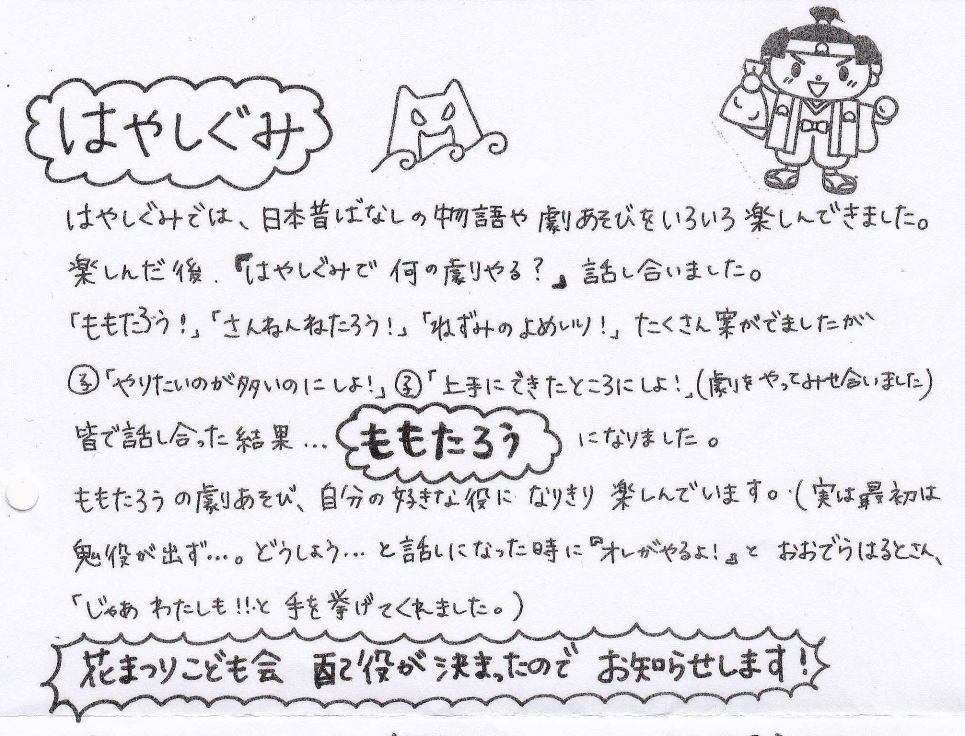 はやしぐみ
はやしぐみでは、日本昔ばなしの物語や劇あそびをいろいろ楽しんできました。
楽しんだ後、『はやしぐみで何の劇やる?』話し合いました。
「ももたろう!」「さんねんねたろう!」「ねずみのよめいり!」たくさん案がでましたが
子「やりたいのが多いのにしよ!」子「上手にできたところにしよ!」(劇をやってみせ合いました)
皆で話し合った結果…ももたろうになりました。
ももたろうの劇あそび、自分の好きな役になりきり楽しんでいます。(実は最初は
鬼役が出ず…。どうしよう…と話しになった時に『オレがやるよ!』とおおでらはるとさん、
「じゃあわたしも!!」と手を挙げてくれました。)
花まつりこども会 配役が決まったのでお知らせします!